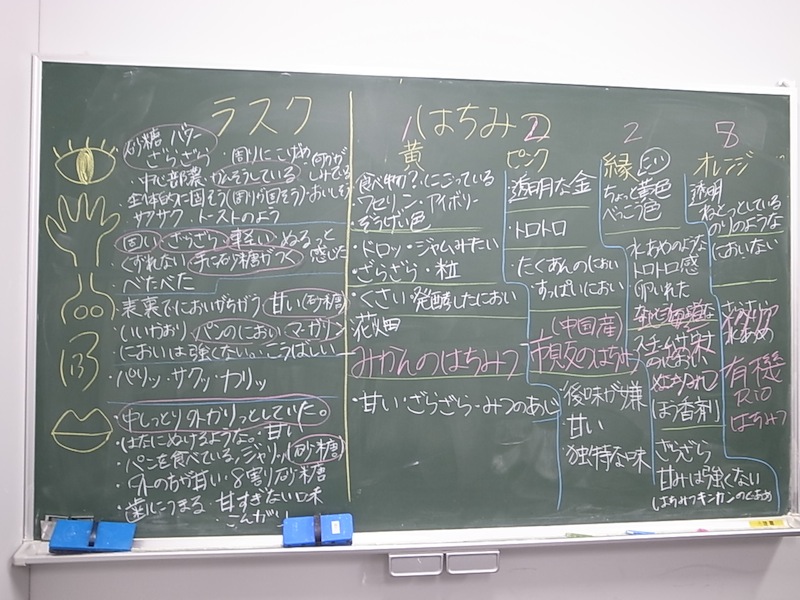 ラスク
砂糖 バター
ざらざら・周りにこげめ
・中心部薄
・全体的に固そう(周りが固そう)・おいしそう
サクサク ・トーストのよう
固い ざらざら 軽い
くずれない 手に砂糖がつく
べたべた
表裏でにおいがちがう 甘い(砂糖)
(いいかおり) パンのにおい マーガリン
においは強くない、こうばしい
・パリッ・サクッ・カリッ
・中しっとり外ガリっとしていた。
はなにぬけるような。甘い
・パンを食べている。ジャリッ(砂糖)
・外のちが甘い・8割り砂糖
・歯につまる・甘すぎない味
はちみつ
黄
食べ物か?・にごっている
ワセリン・アイボリー
ぞうげ色
・ドロッ・ジャムみたい
・ざらざら・粒
・くさい・発酵したにおい
花畑
みかんのはちみつ
・甘い・ざらざら・みつのあじ
ピンク
透明な金
・トロトロ
・たくあんのにおい
・すっぱいにおい
(中国産)
市販のはちみつ
・後味が嫌
甘い
独特な味
2
緑
ちょっと黄色
べっこう色
水あめのような
トロトロ感
のにおい
ぼう香剤
ざらざら
甘みは強くない
8
オレンジ
透明
ねとっとしている
のりのような
においない
水あめ
有機
Rio
はちみつ